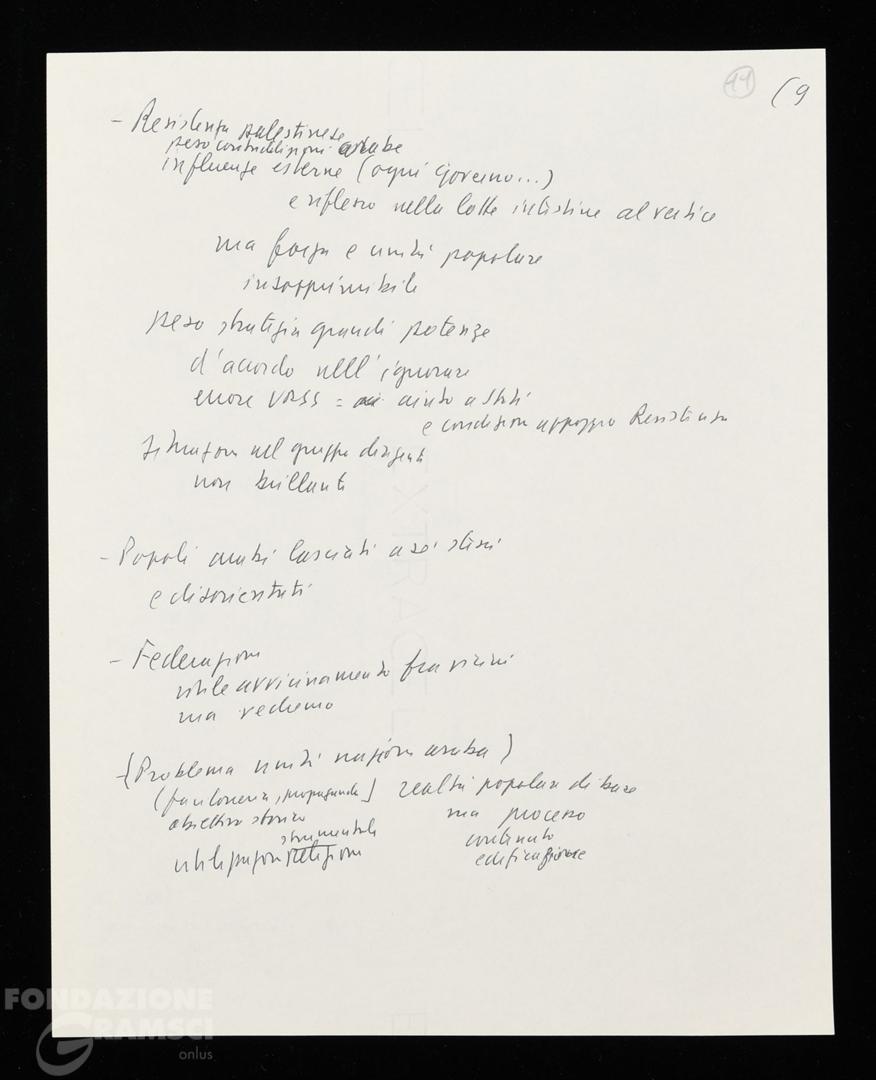 44
(9
- Resistenza palestinese
peso contraddizioni arabe
influenze esterne (ogni Governo...)
e riflesso nelle lotte intestine al vertice
ma forza e unità popolare
insopprimibile
peso strategia grandi potenze
d'accordo nell'ignorare
errore URSS = aiuto a Stati
e condizioni appoggio Resistenza
situazione nel gruppo dirigente
non brillante
- Popoli arabi lasciati a se stessi
e disorientati
- Federazione
utile avvicinamento fra vicini
ma vedremo
- (Problema unità nazione araba)
(fanfoneria, propaganda) realtà popolare di base
obiettivo storico ma processo
strumentale contenuto
utilizzazione religione edificazione
FONDAZIONE
GRAMSCI
onlus